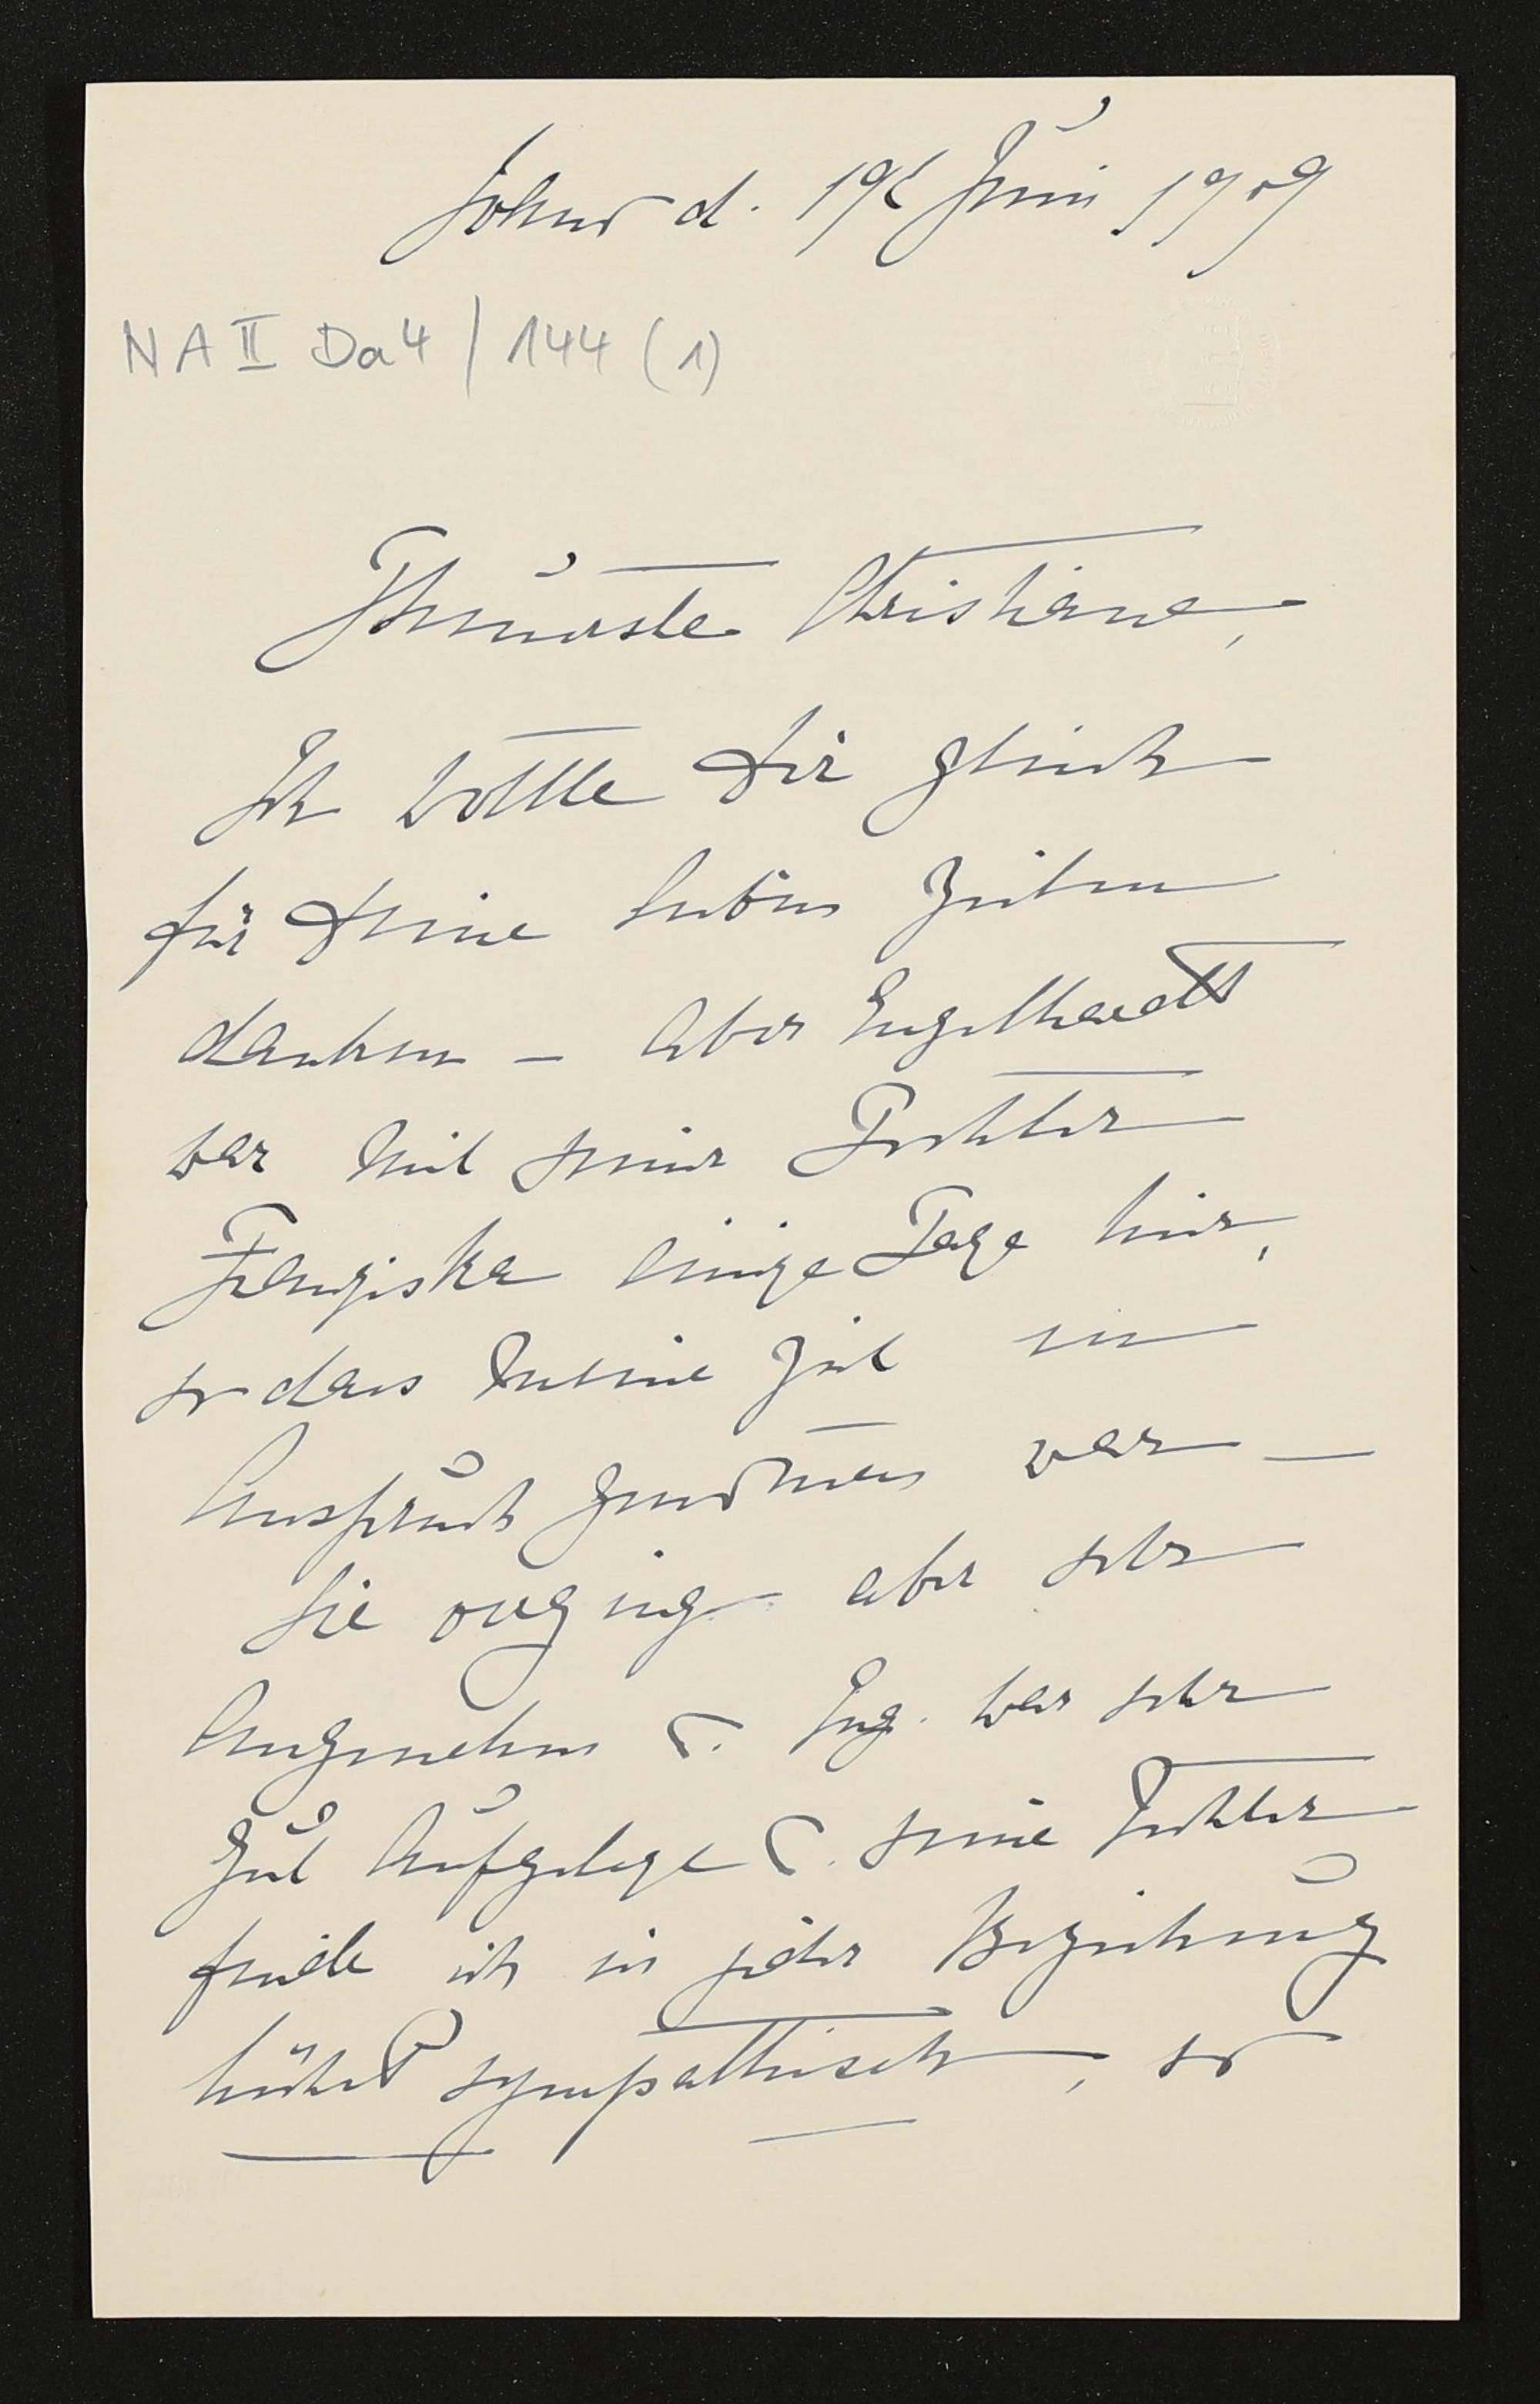 d. 19t Juni 1909
NA II Da 4 / 144 (1)
Theuerste Christiane,
Ich wollte Dir gleich
für Deine lieben Zeilen
danken – aber Engelhardt
war mit seiner Tochter
Franziska einige Tage hier,
so dass meine Zeit in
Anspruch genommen war –
Sie verging aber sehr
angenehm u. Eng. war sehr
gut aufgelegt u. seine Tochter
finde ich in jeder Beziehung
höchst sympathisch, so